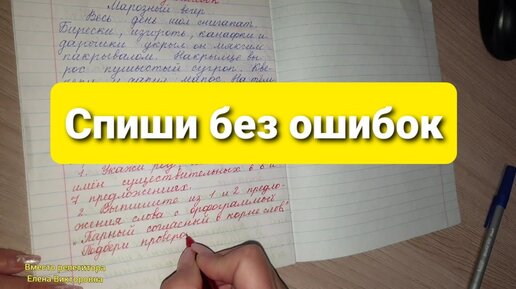 Марозный вечер
Весь день шол снигапат.
Бирески, изгироть, канафки и
дарошки укрыл он мяхким
пакрывалом. На крылце вы
рос пушыстый сугроп.
Спиши без ошибок
1. Укажи род
имён существительных в 6 и
7 предложениях.
2. Выпишите из 1 и 2 предло-
жения слова с орфограммой
"Парный согласный в корне слов."
Подбери провер
Вместо репетитора
Елена Викторовна